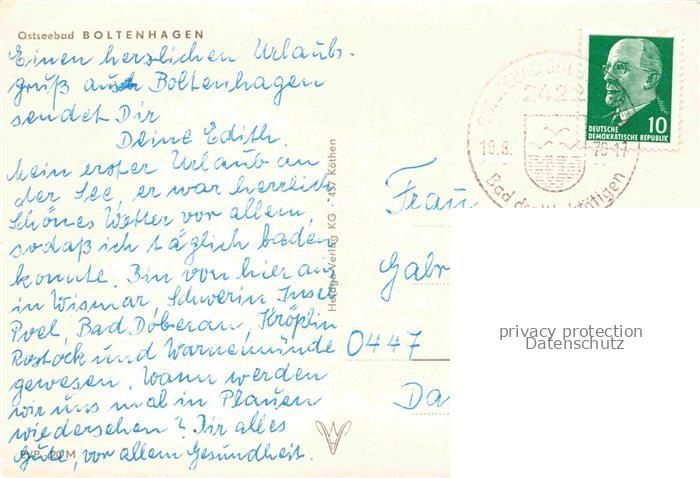 Ostseebad BOLTENHAGEN
Einen herzlichen Urlaubs-
gruß aus Boltenhagen
sendet Dir
Deine Edith.
Mein erster Urlaub an
der See, er war herrlich
Schönes Wetter vor allem,
sodaß ich täglich baden
konnte. Bin von hier aus
in Wismar, Schwerin Insel
Poel, Bad Doberan, Kröplin
Rostock und Warnemünde
gewesen. Wann werden
wir uns mal in Plauen
wiedersehen? Dir alles
Gute, vor allem Gesundheit.
EVP -,20 M
Heldge-Verlag KG · 437 Köthen
2422
19.8.
-17
Bad der Werktätigen
DEUTSCHE
DEMOKRATISCHE REPUBLIK
10
Frau
Gabr
0447
Da
privacy protection
Datenschutz